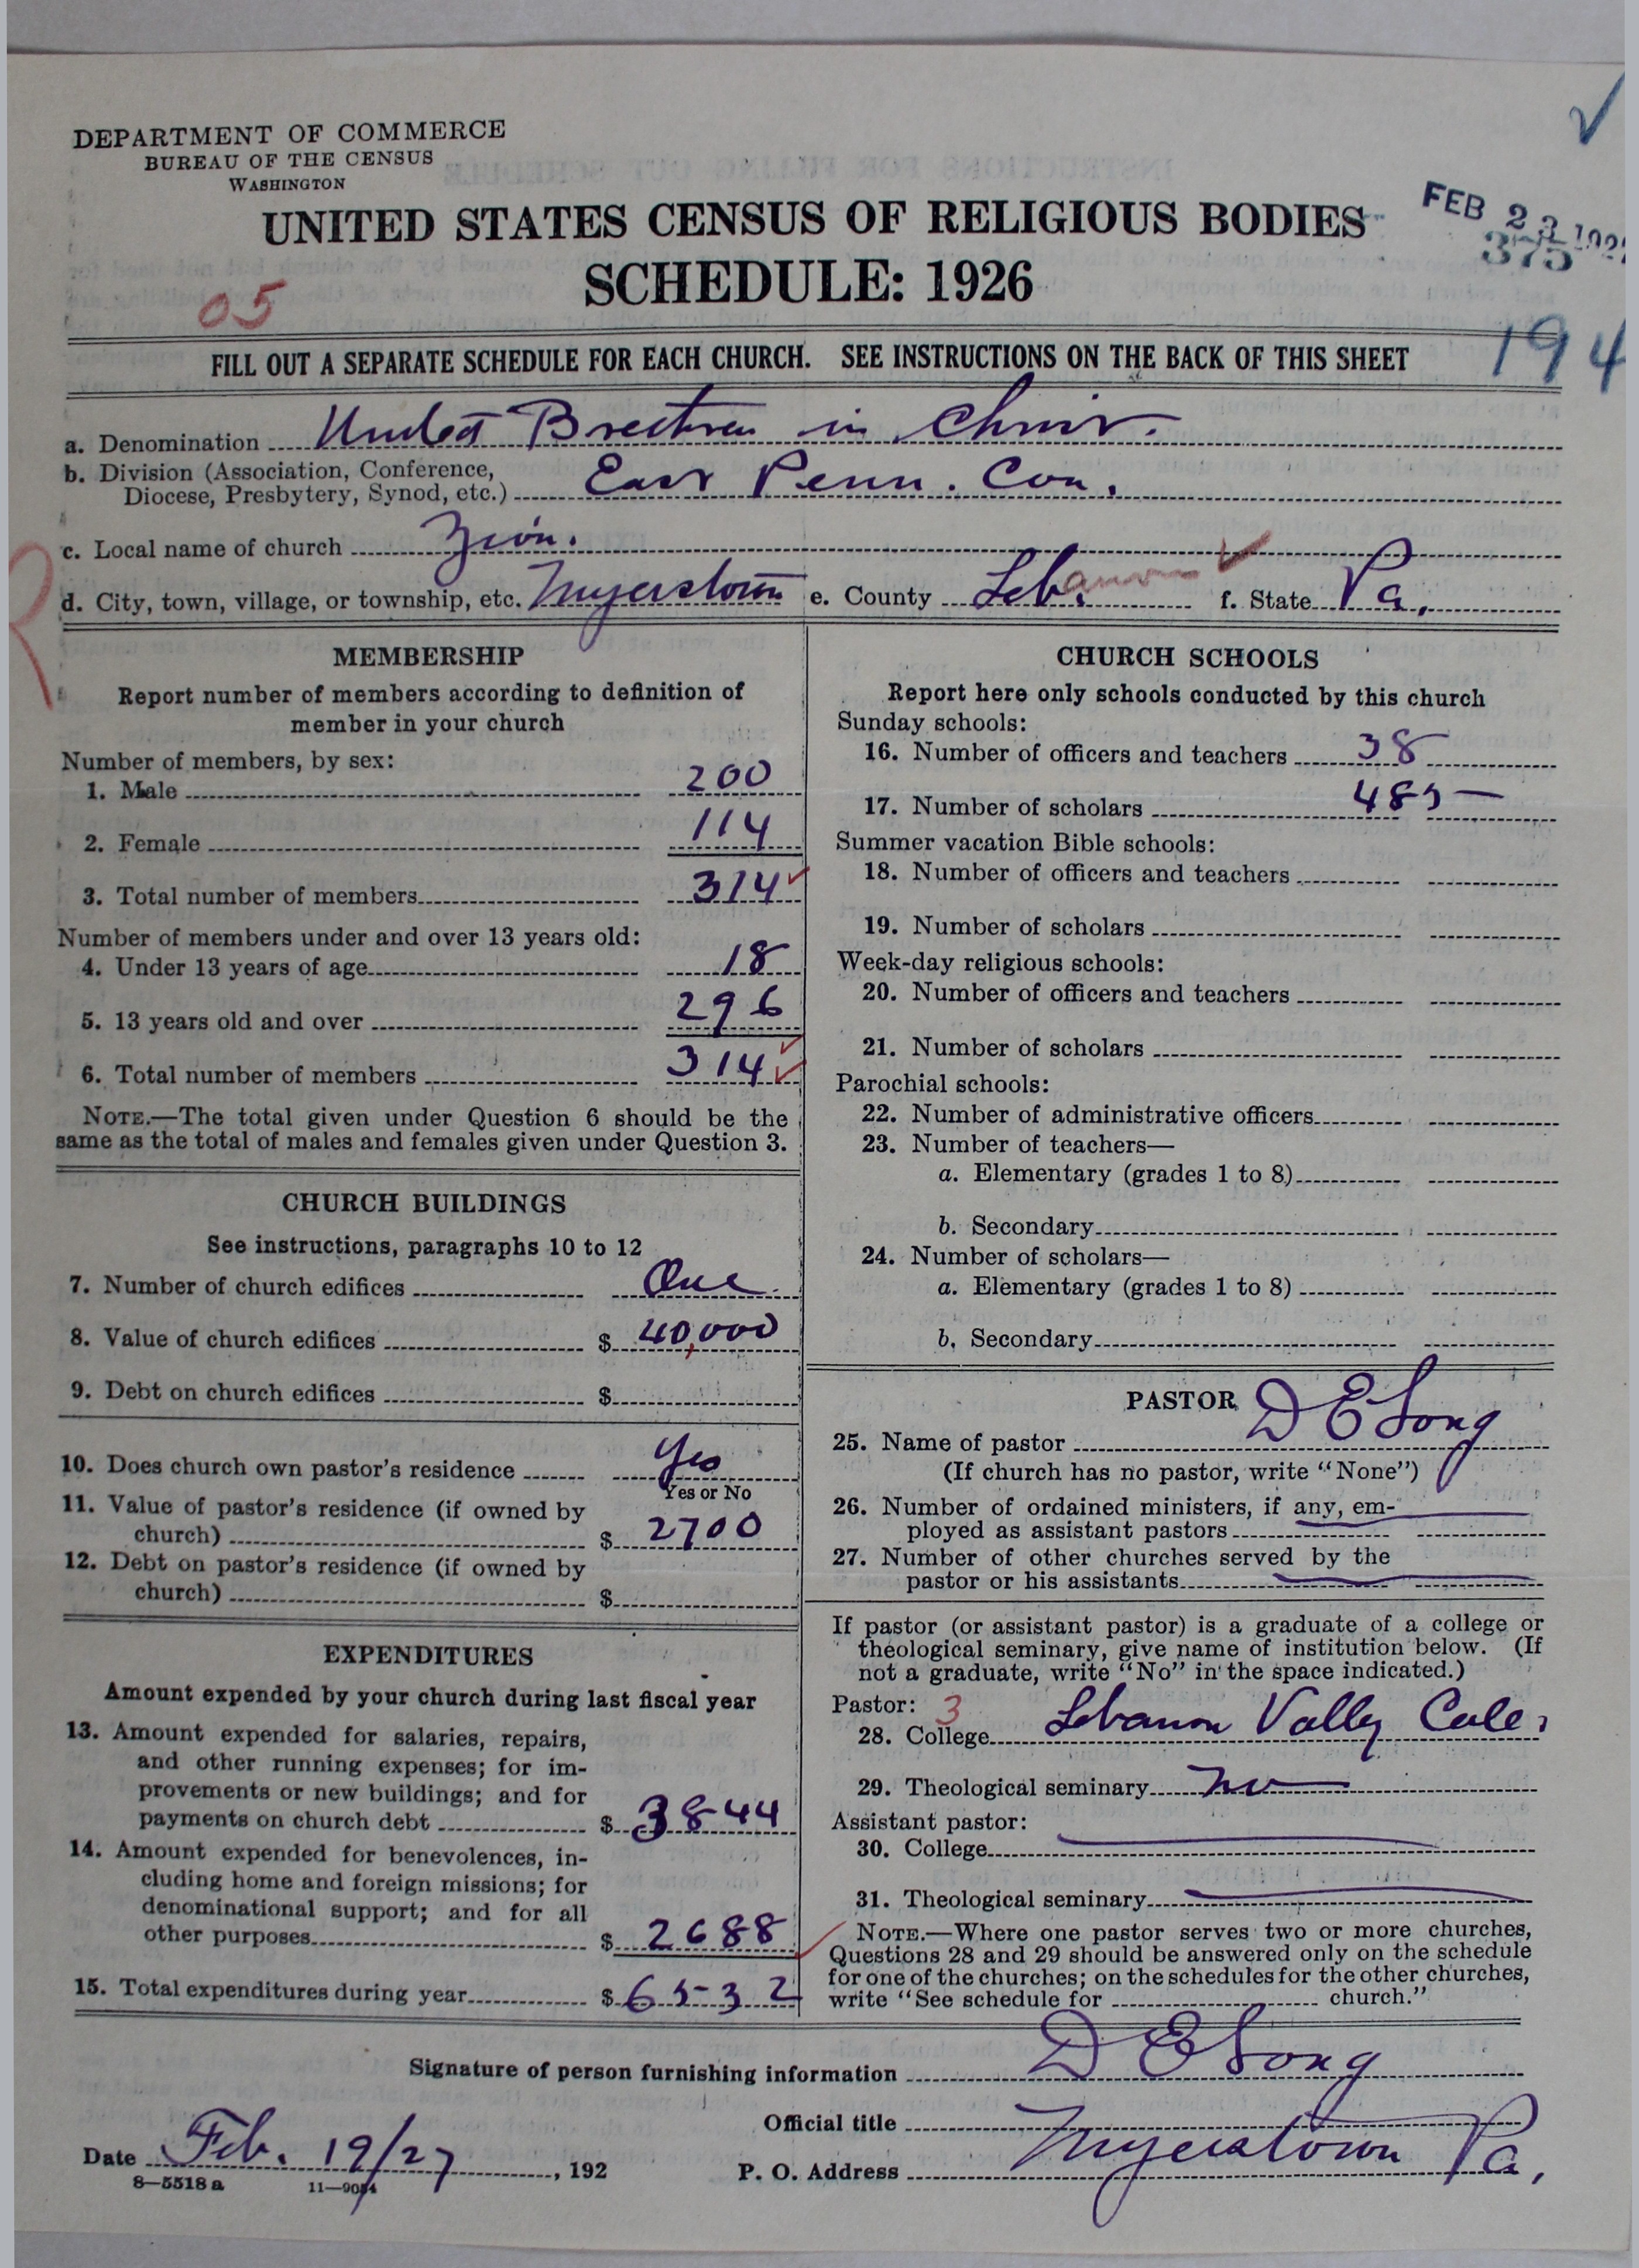 DEPARTMENT OF COMMERCE
BUREAU OF THE CENSUS
WASHINGTON
UNITED STATES CENSUS OF RELIGIOUS BODIES
SCHEDULE: 1926
FEB 23 192
375
05
194
FILL OUT A SEPARATE SCHEDULE FOR EACH CHURCH. SEE INSTRUCTIONS ON THE BACK OF THIS SHEET
a. Denomination United Brethren in Christ.
b. Division (Association, Conference,
Diocese, Presbytery, Synod, etc.) East Penn. Con.
c. Local name of church Zion.
d. City, town, village, or township, etc. Myerstown e. County Lebanon f. State Pa.
MEMBERSHIP
Report number of members according to definition of
member in your church
Number of members, by sex:
1. Male 200
2. Female 114
3. Total number of members 314
Number of members under and over 13 years old:
4. Under 13 years of age 18
5. 13 years old and over 296
6. Total number of members 314
NOTE.—The total given under Question 6 should be the
same as the total of males and females given under Question 3.
CHURCH BUILDINGS
See instructions, paragraphs 10 to 12
7. Number of church edifices One
8. Value of church edifices $ 40,000
9. Debt on church edifices $
10. Does church own pastor's residence Yes
Yes or No
11. Value of pastor's residence (if owned by
church) $ 2700
12. Debt on pastor's residence (if owned by
church) $
EXPENDITURES
Amount expended by your church during last fiscal year
13. Amount expended for salaries, repairs,
and other running expenses; for im-
provements or new buildings; and for
payments on church debt $ 3844
14. Amount expended for benevolences, in-
cluding home and foreign missions; for
denominational support; and for all
other purposes $ 2688
15. Total expenditures during year $ 6532
CHURCH SCHOOLS
Report here only schools conducted by this church
Sunday schools:
16. Number of officers and teachers 38
17. Number of scholars 485
Summer vacation Bible schools:
18. Number of officers and teachers
19. Number of scholars
Week-day religious schools:
20. Number of officers and teachers
21. Number of scholars
Parochial schools:
22. Number of administrative officers
23. Number of teachers—
a. Elementary (grades 1 to 8)
b. Secondary
24. Number of scholars—
a. Elementary (grades 1 to 8)
b. Secondary
PASTOR
25. Name of pastor D E Long
(If church has no pastor, write "None")
26. Number of ordained ministers, if any, em-
ployed as assistant pastors
27. Number of other churches served by the
pastor or his assistants
If pastor (or assistant pastor) is a graduate of a college or
theological seminary, give name of institution below. (If
not a graduate, write "No" in the space indicated.)
Pastor: 3
28. College Lebanon Valley Cole.
29. Theological seminary no
Assistant pastor:
30. College
31. Theological seminary
NOTE.—Where one pastor serves two or more churches,
Questions 28 and 29 should be answered only on the schedule
for one of the churches; on the schedules for the other churches,
write "See schedule for church."
Signature of person furnishing information D E Long
Official title
Date Feb. 19/27, 192
P. O. Address Myerstown Pa.
8—5518 a 11—9054